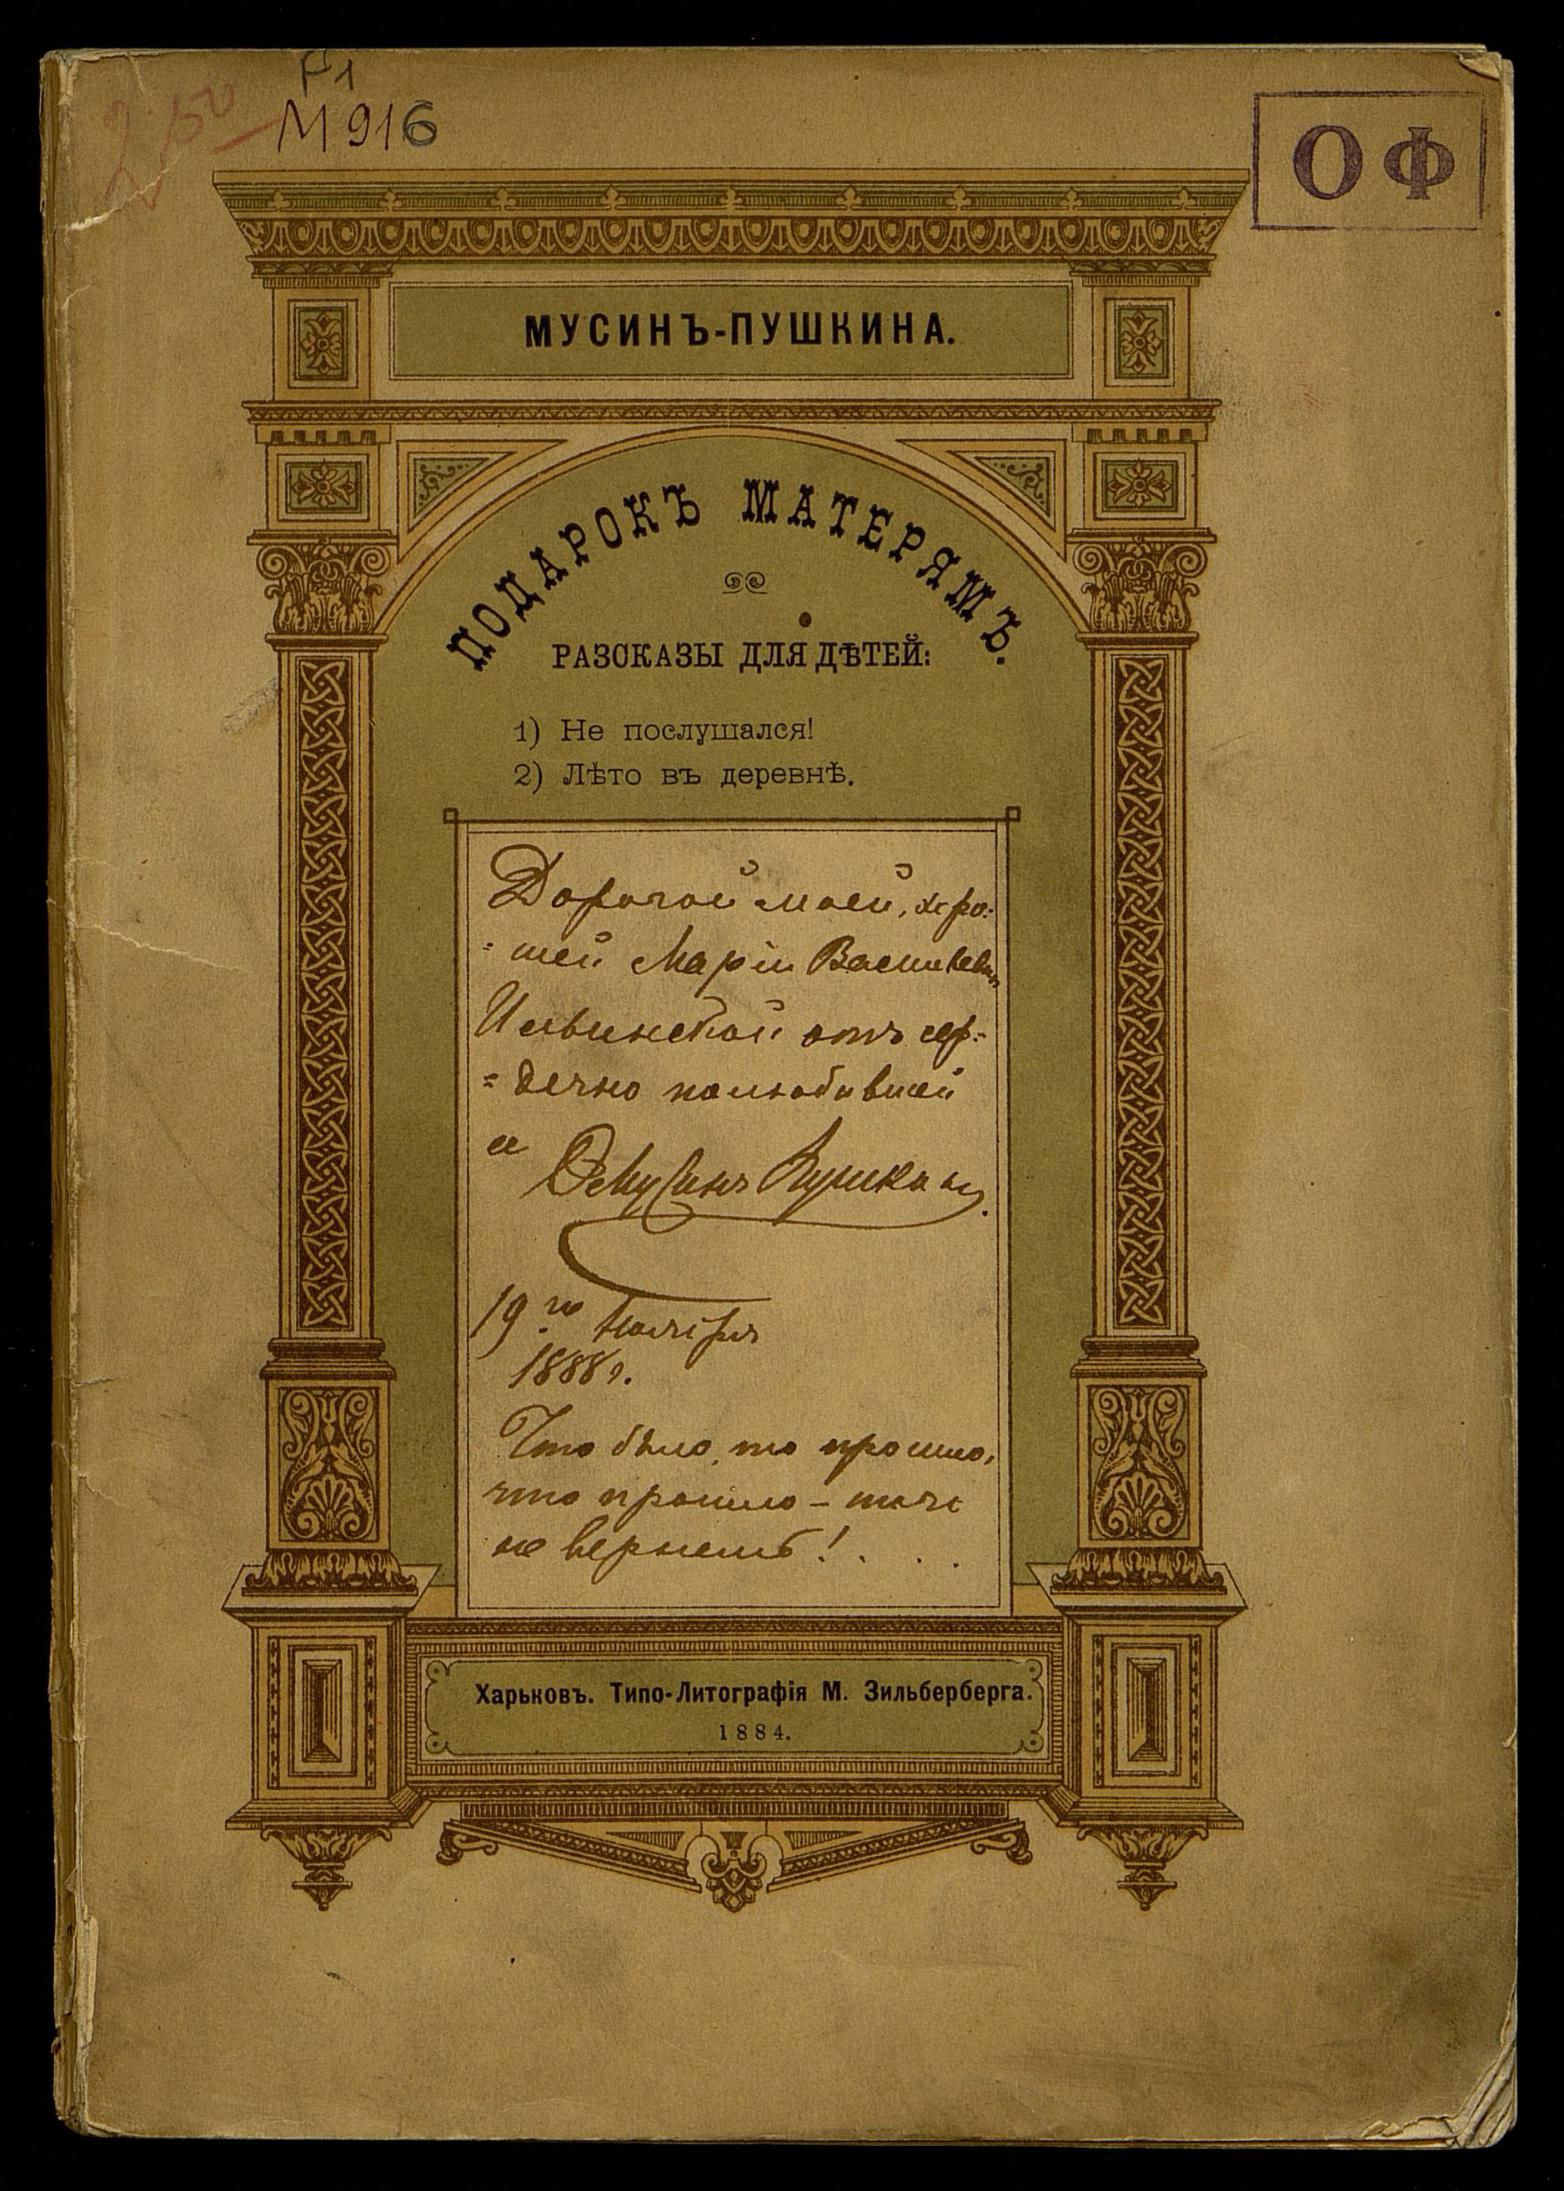 Р1
2.50
М916
О Ф
МУСИНЪ-ПУШКИНА.
ПОДАРОКЪ МАТЕРЯМЪ.
РАЗСКАЗЫ ДЛЯ ДѢТЕЙ:
1) Не послушался!
2) Лѣто въ деревнѣ.
Дорогой моей, хоро-
=шей Маріи Васильевнѣ
Ильинской отъ сер-
=дечно полюбившей
ее Мусинъ Пушкина.
19го Ноября
1888 г.
Что было, то прошло,
что прошло – того
не вернешь! . . .
Харьковъ. Типо-Литографія М. Зильберберга.
1884.